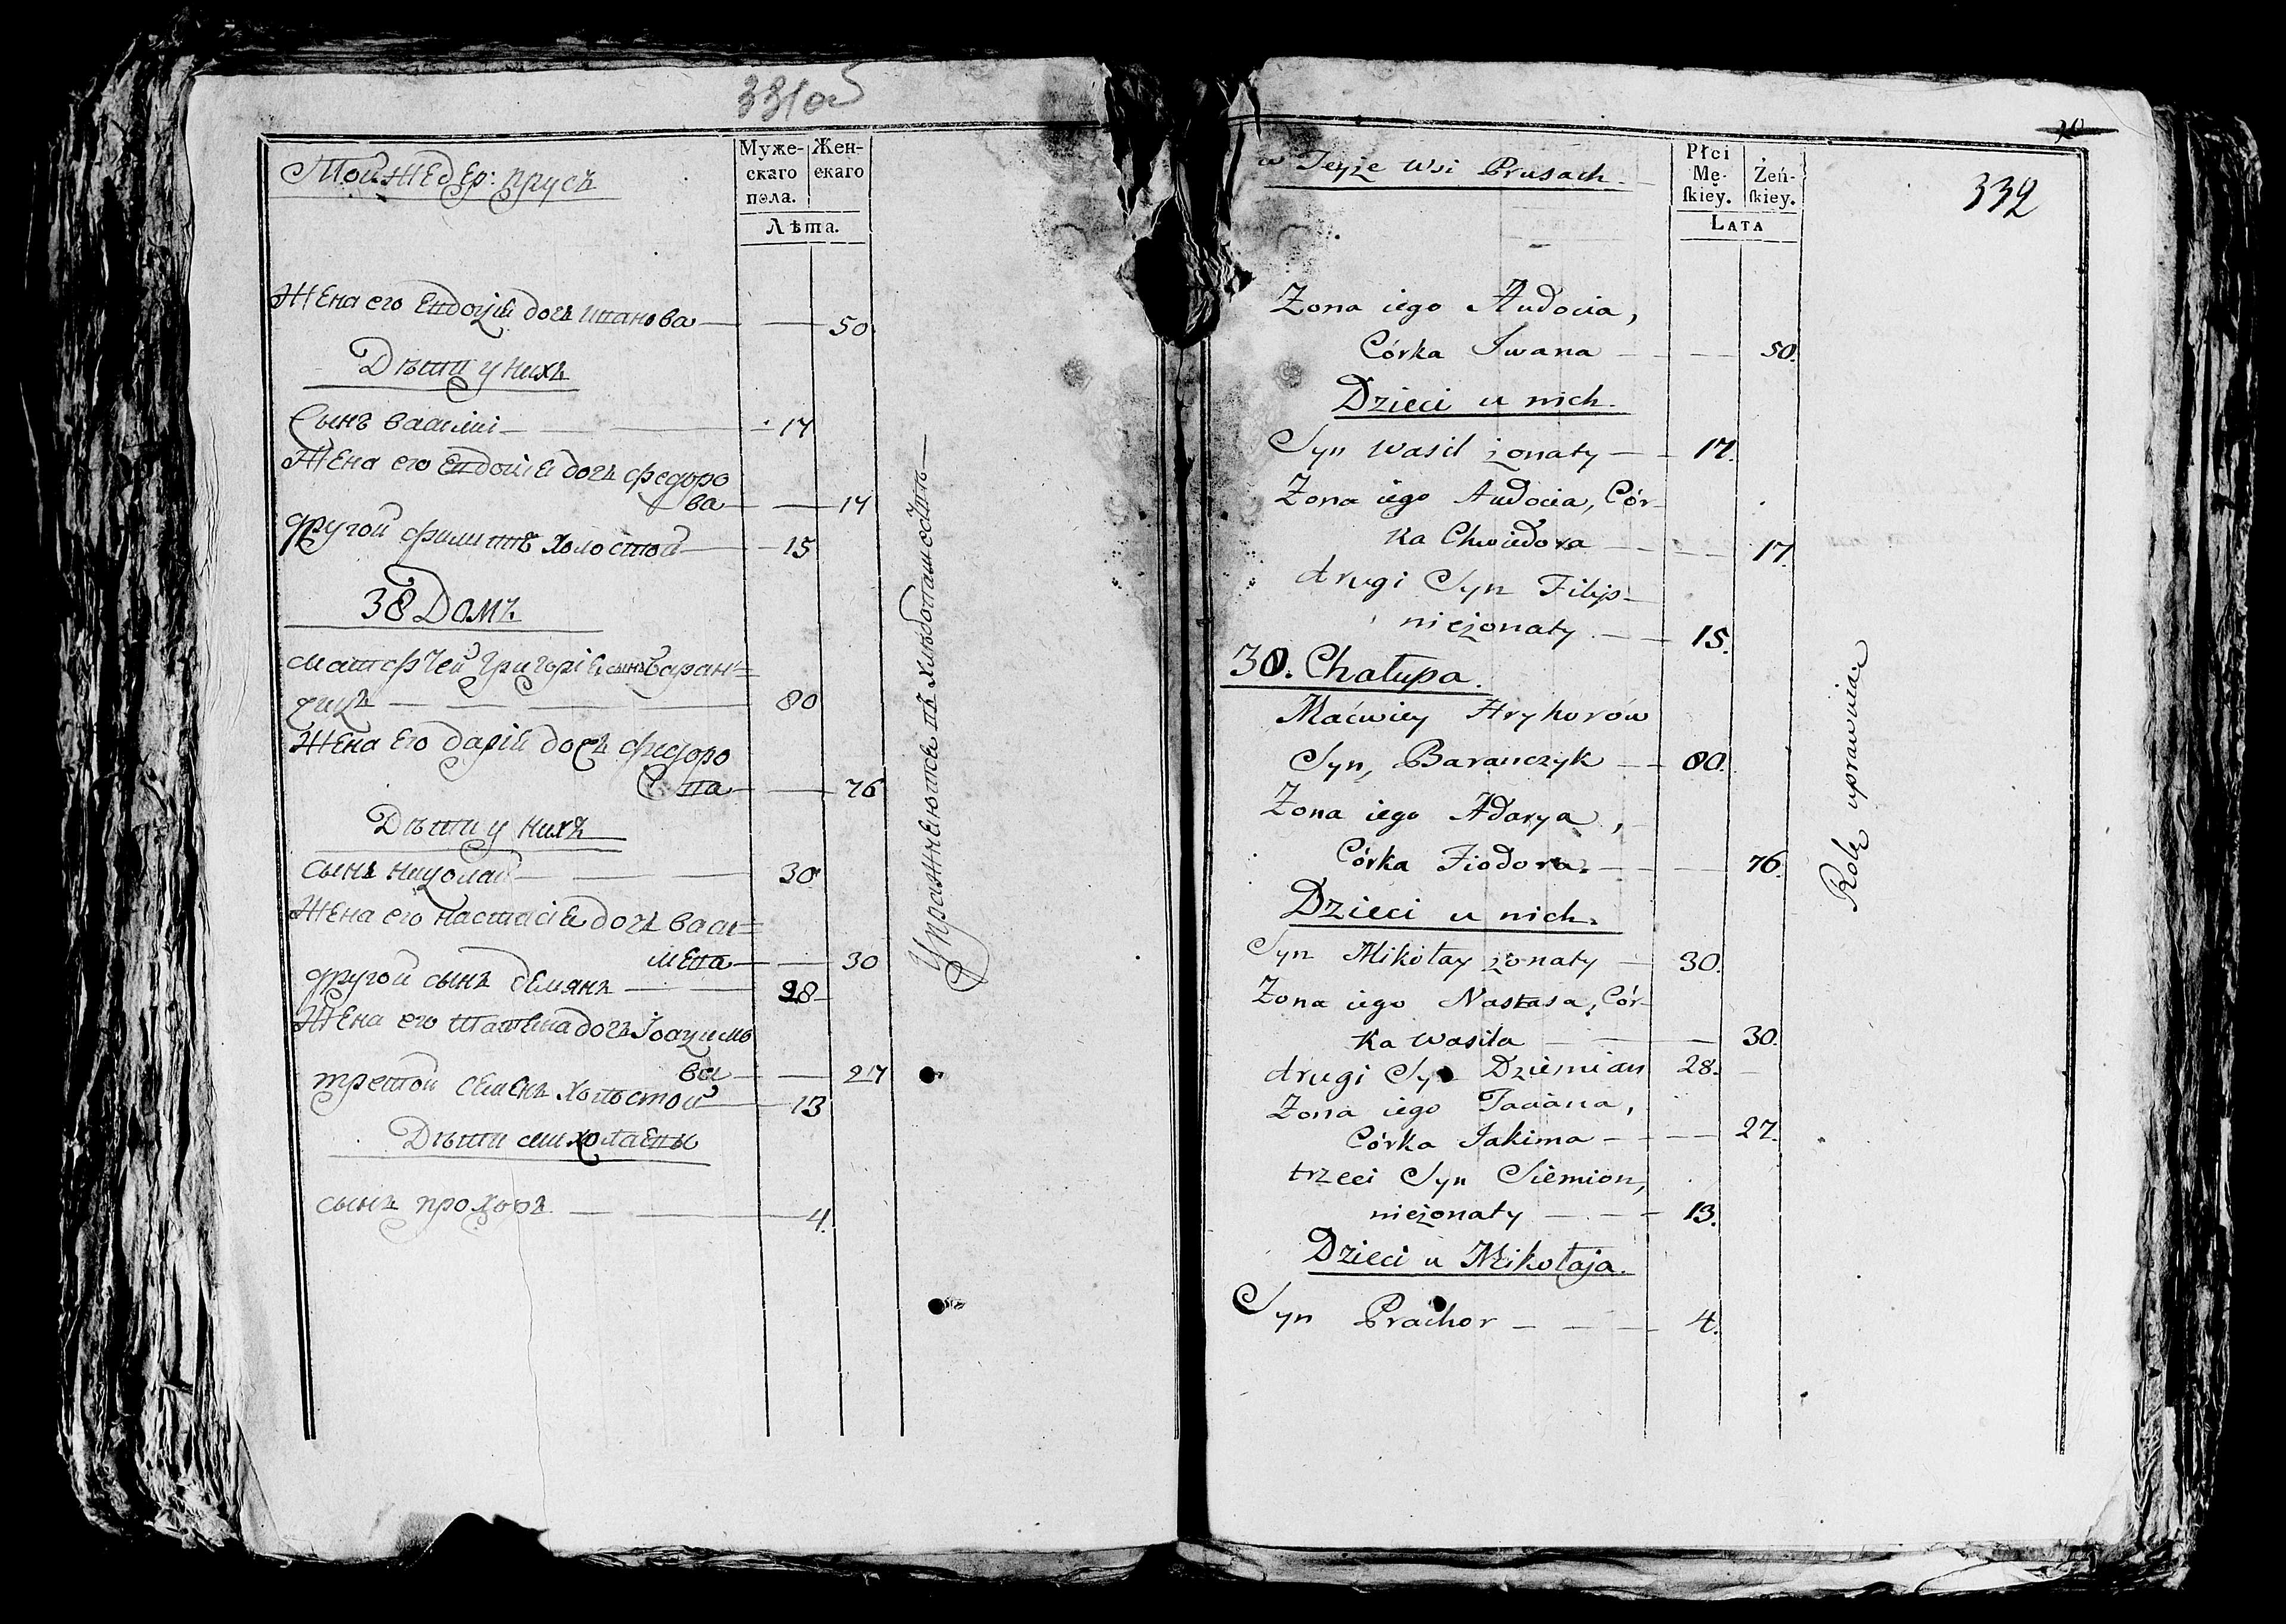 331об
Тойже дер: прусъ
Муже-
скаго
пола.
Жен-
скаго
Лѣта.
Жена его Евдоція дочъ иванова 50
Дѣти у нихъ
Сынъ василіи 17
Жена его Евдоція дочъ федоро
ва 17
другой филипъ холостой 15
38 Домъ
матфчей григоріевъ сынъ баран=
чикъ 80
Жена его дарія дочъ федоро
ва 76
Дѣти у нихъ
сынъ николай 30
Жена его настасія дочъ васи=
лева 30
другой сынъ демянъ 28
Жена его татяна дочъ Іоакимо
ва 27
третой семенъ холостой 13
Дѣти николаевы
сынъ прохоръ 4.
Упражняются въ хлѣбопашествѣ
30
332
w Teyże wsi Prusach.
Płci
Mę-
skiey.
Żeń-
skiey.
LATA
Żona iego Audocia,
Córka Iwana 50.
Dzieci u nich.
Syn Wasil żonaty 17.
Żona iego Audocia, Cór-
ka Chwiedora 17.
drugi Syn Filip
nieżonaty 15.
38. Chałupa.
Maćwiey Hryhorów
Syn, Barańczyk 80.
Żona iego Adarya,
Córka Fiodora. 76.
Dzieci u nich.
Syn Mikołay żonaty 30.
Żona iego Nastasa, Cór-
ka Wasila 30.
drugi Syn Dziemian 28.
Żona iego Taciana,
Córka Jakima 27.
trzeci Syn Siemion,
nieżonaty 13.
Dzieci u Mikołaja.
Syn Prachor 4.
Rolę uprawiaią